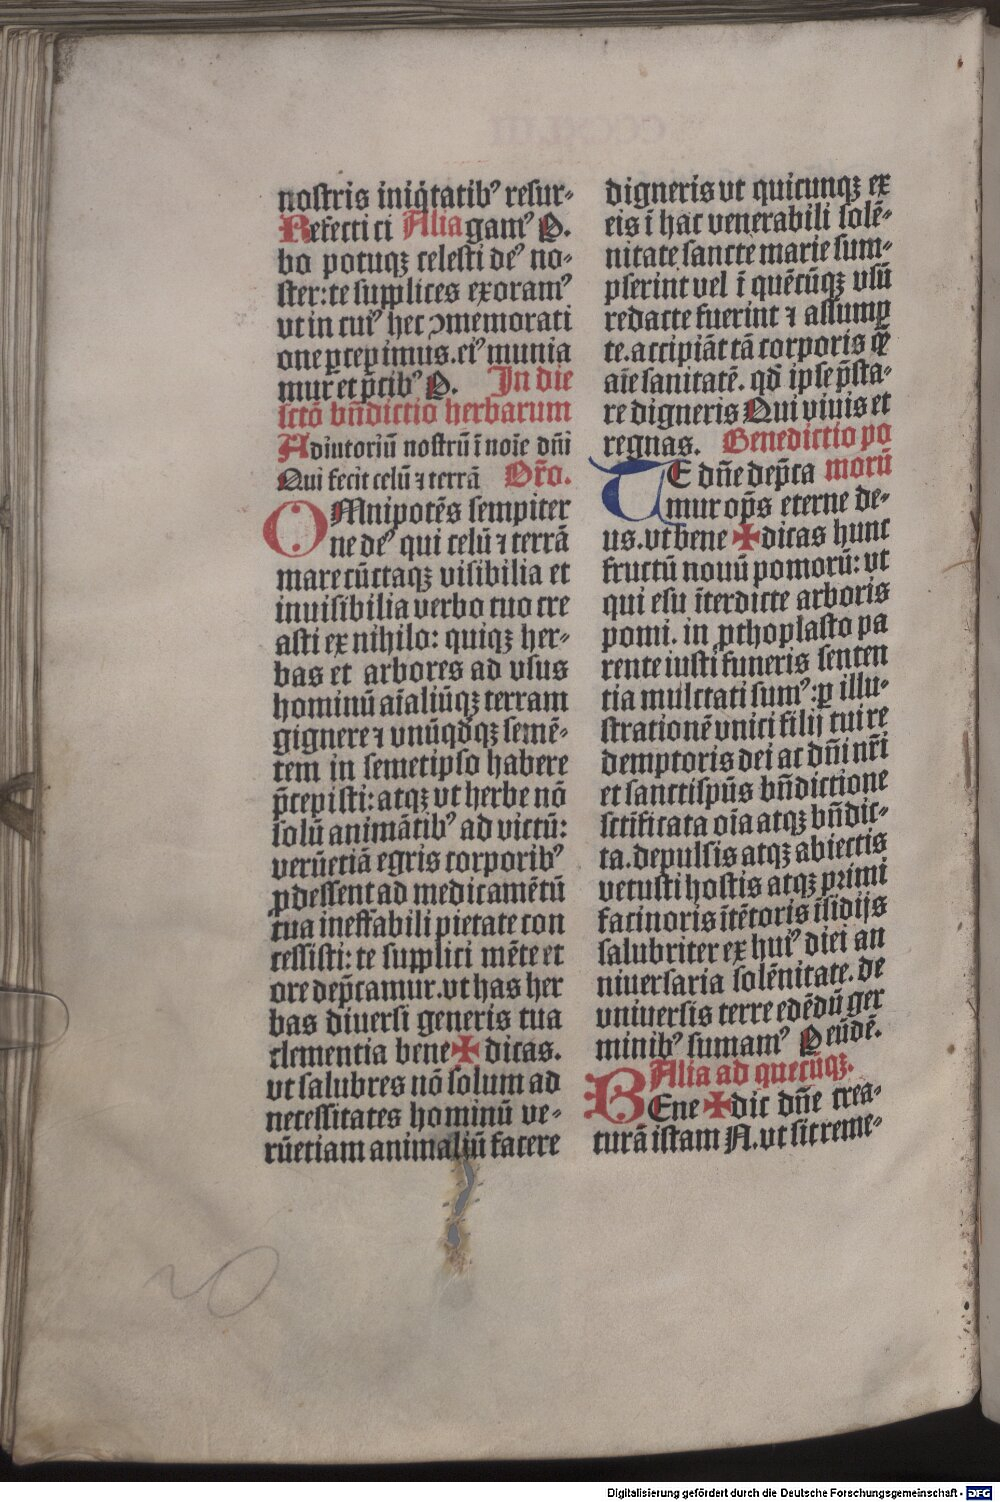 nostris iniq̃tatib⁹ resur-
Refecti ci Alia gam⁹ P.
bo potuqꝫ celesti de⁹ no-
ster: te supplices exoram⁹
vt in cui⁹ hec ꝯmemorati
one ꝑcepimus. ei⁹ munia
mur et p̃cib⁹ P. In die
sctõ bñdictio herbarum
Adiutoriũ nostrũ ĩ noĩe dñi
Qui fecit celũ ⁊ terrã Or̃o.
OMnipotẽs sempiter
ne de⁹ qui celũ ⁊ terrã
mare cũctaqꝫ visibilia et
inuisibilia verbo tuo cre
asti ex nihilo: quiqꝫ her-
bas et arbores ad vsus
hominũ aĩaliũqꝫ terram
gignere ⁊ vnũqðqꝫ semẽ-
tem in semetipso habere
p̃cepisti: atqꝫ vt herbe nõ
solũ animãtib⁹ ad victũ:
verũetiã egris corporib⁹
ꝓdessent ad medicamẽtũ
tua ineffabili pietate con
cessisti: te supplici mẽte et
ore dep̃camur. vt has her
bas diuersi generis tua
clementia bene✠dicas.
vt salubres nõ solum ad
necessitates hominũ ve-
rũetiam animaliũ facere
digneris vt quicunqꝫ ex
eis ĩ hac venerabili solẽ-
nitate sancte marie sum-
pserint vel ĩ quẽcũqꝫ vsũ
redacte fuerint ⁊ assump
te. accipiãt tã corporis q̃
aĩe sanitatẽ. qð ipse p̃sta-
re digneris Qui viuis et
regnas. Benedictio po
TE dñe dep̃ca morũ
mur op̃s eterne de-
us. vt bene ✠dicas hunc
fructũ nouũ pomorũ: vt
qui esu ĩterdicte arboris
pomi. in ꝓthoplasto pa
rente iusti funeris senten
tia mulctati sum⁹: ꝑ illu-
strationẽ vnici filij tui re
demptoris dei ac dñi nr̃i
et sanctispũs bñdictione
sctĩficata oĩa atqꝫ bñdic-
ta. depulsis atqꝫ abiectis
vetusti hostis atqꝫ primi
facinoris ĩtẽtoris ĩsidijs
salubriter ex hui⁹ diei an
niuersaria solẽnitate. de
vniuersis terre edẽdũ ger
minib⁹ sumam⁹ Peũdẽ.
Alia ad quecũqꝫ.
BEne ✠dic dñe crea-
turã istam N. vt sit reme-
Digitalisierung gefördert durch die Deutsche Forschungsgemeinschaft - DFG